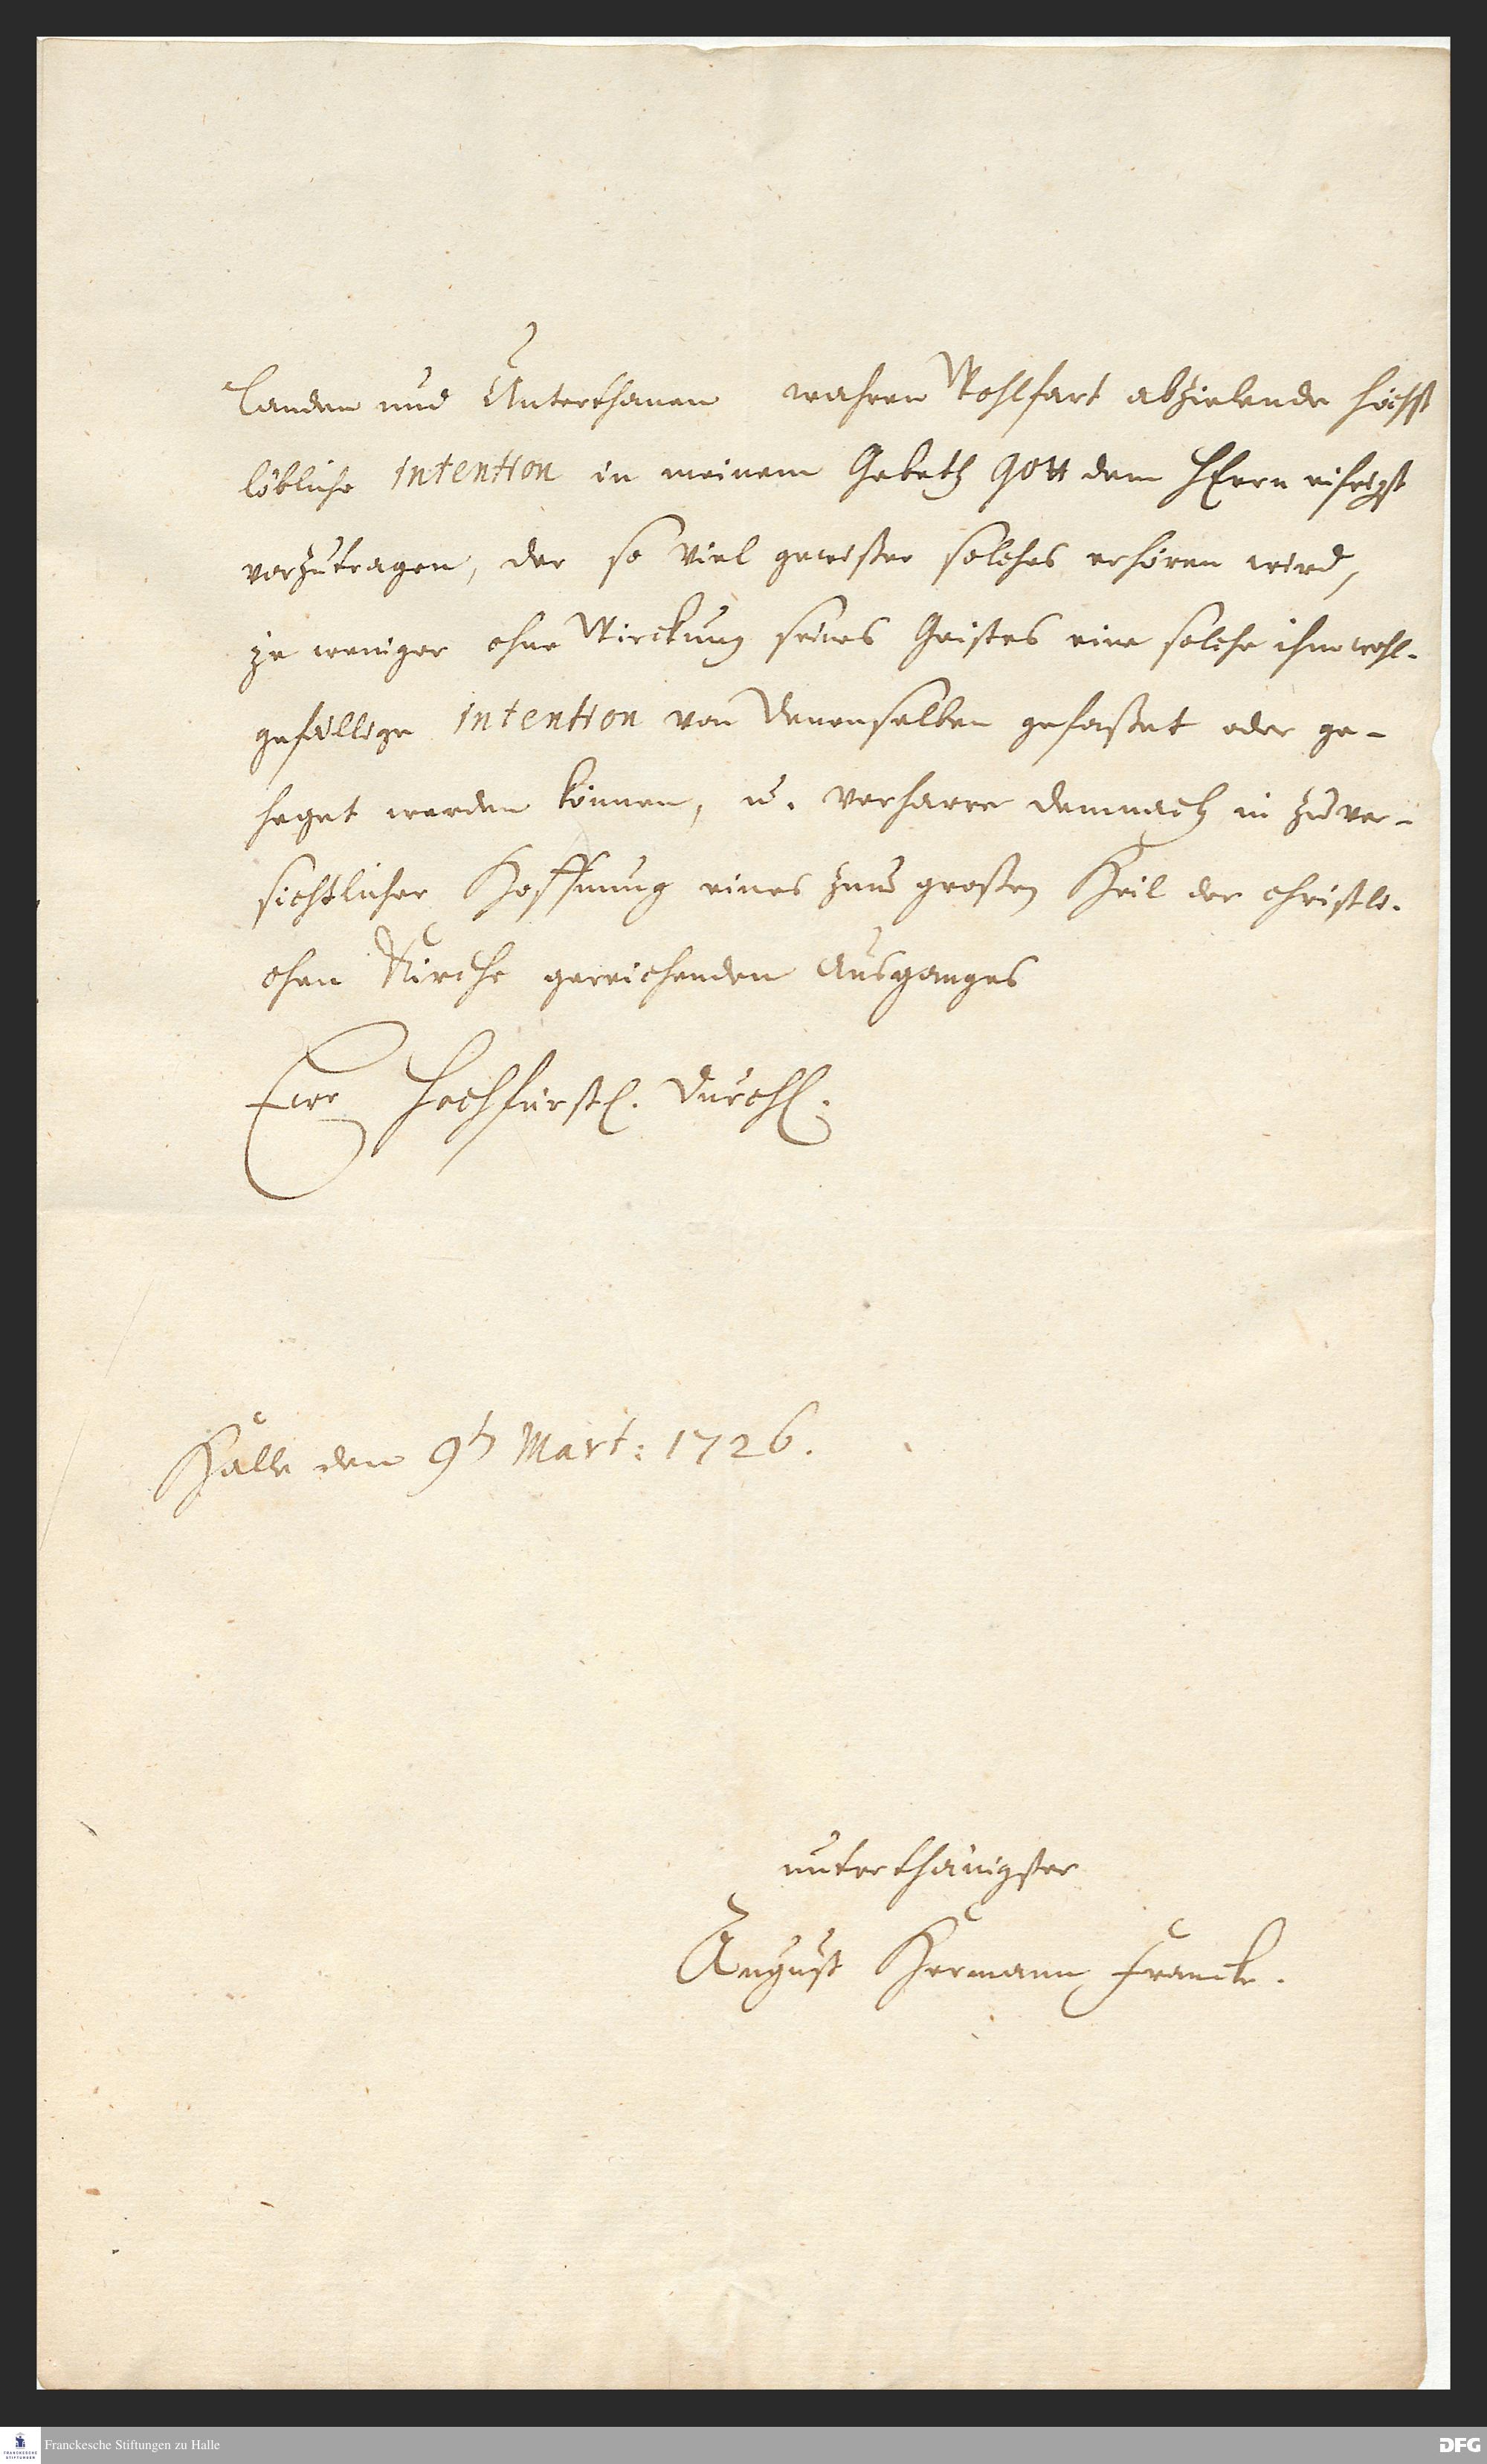 Landen und Unterthanen wahren Wohlfart abzielende höchst
löbliche intention in meinem Gebeth Gott dem HErrn eifrigst
vorzutragen, der so viel gewißer solches erhören wird,
je weniger ohne Wirckung seines Geistes eine solche ihm wohl-
gefällige intention von Denenselben gefaßet oder ge-
heget werden können, u. verharre demnach in zuver-
sichtlicher Hoffnung eines zum großen Heil der christli-
chen Kirche gereichenden Ausganges
Ew. Hochfürstl. Durchl.
Halle den 9ten Mart: 1726.
unterthänigster
August Hermann Francke.
Franckesche Stiftungen zu Halle
FRANCKESCHE
STIFTUNGEN
DFG